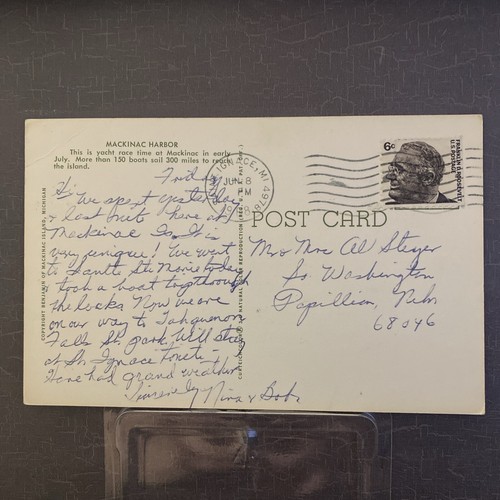 MACKINAC HARBOR
This is yacht race time at Mackinac in early
July. More than 150 boats sail 300 miles to reach
the island.
Friday
Hi
We spent yesterday
& last nite here at
Mackinac Is. It is
very unique! We went
to Sault Ste Marie today
took a boat trip through
the locks. Now we are
on our way to Tahquamenon
Falls St. park. Will stay
at St. Ignace tonite -
Have had grand weather
Sincerely Nina & Bob
COPYRIGHT BENJAMIN OF MACKINAC ISLAND, MICHIGAN
POST CARD
JUN 8
PM
6¢
FRANKLIN D. ROOSEVELT
U.S. POSTAGE
Mr & Mrs Al
So. Washington
Papillion, Nebr
68046